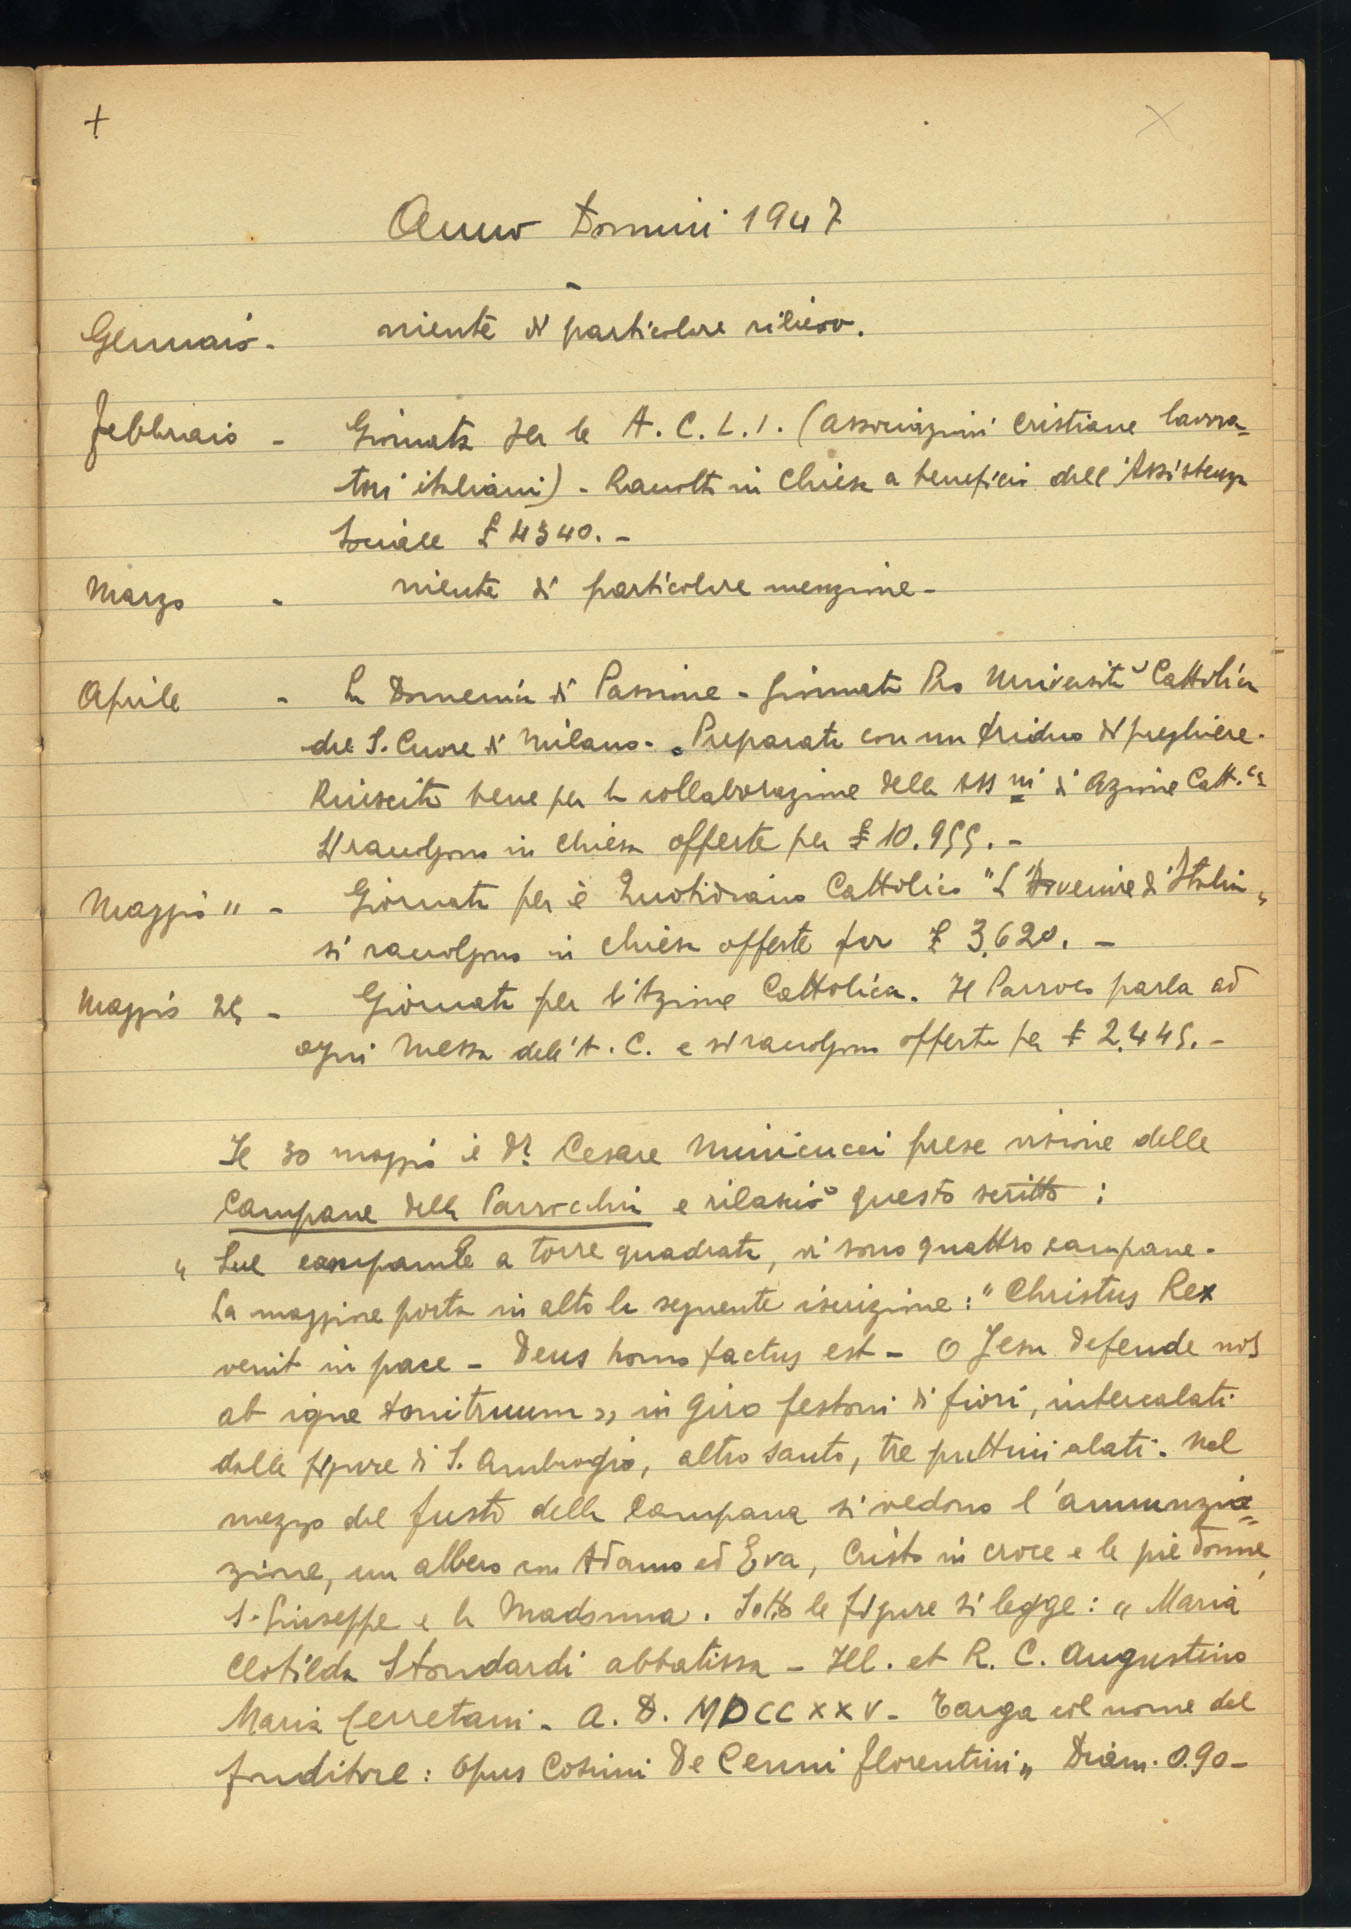 +
Anno Domini 1947
Gennaio - niente di particolare rilievo.
Febbraio - Giornata per le A.C.L.I. (associazioni cristiane lavora-
tori italiani) - Raccolti in Chiesa a beneficio dell'Assistenza
Sociale £ 4340. -
Marzo - niente di particolare menzione -
Aprile - La Domenica di Passione - Giornata Pro Università Cattolica
del S. Cuore di Milano - Preparata con un triduo di preghiere.
Riuscita bene per la collaborazione delle Ass.ni di Azione Catt.ca
Si raccolgono in chiesa offerte per £ 10.955. -
Maggio " - Giornata per il Quotidiano Cattolico "L'Avvenire d'Italia"
si raccolgono in chiesa offerte per £ 3.620. -
Maggio 25 - Giornata per l'Azione Cattolica. Il Parroco parla ad
ogni Messa dell'A.C. e si raccolgono offerte per £ 2.445. -
Il 30 maggio il Dr. Cesare Minicucci prese visione delle
Campane della Parrocchia e rilasciò questo scritto :
" Sul campanile a torre quadrata, vi sono quattro campane.
La maggiore porta in alto la seguente iscrizione: "Christus Rex
venit in pace - Deus homo factus est - O Jesu defende nos
ab igne tonitruum" in giro festoni di fiori, intercalati
dalle figure di S. Ambrogio, altro santo, tre puttini alati. Nel
mezzo del fusto della Campana si vedono l'annunzia=
zione, un albero con Adamo ed Eva, Cristo in croce e le pie donne,
S. Giuseppe e la Madonna. Sotto le figure si legge: "Maria
Clotilda Stendardi abbatissa - Ill. et R. C. Augustino
Maria Cerretani - A. D. MDCCXXV - Targa col nome del
fonditore: Opus Cosimi De Cenni florentini" Diam. 0.90 -